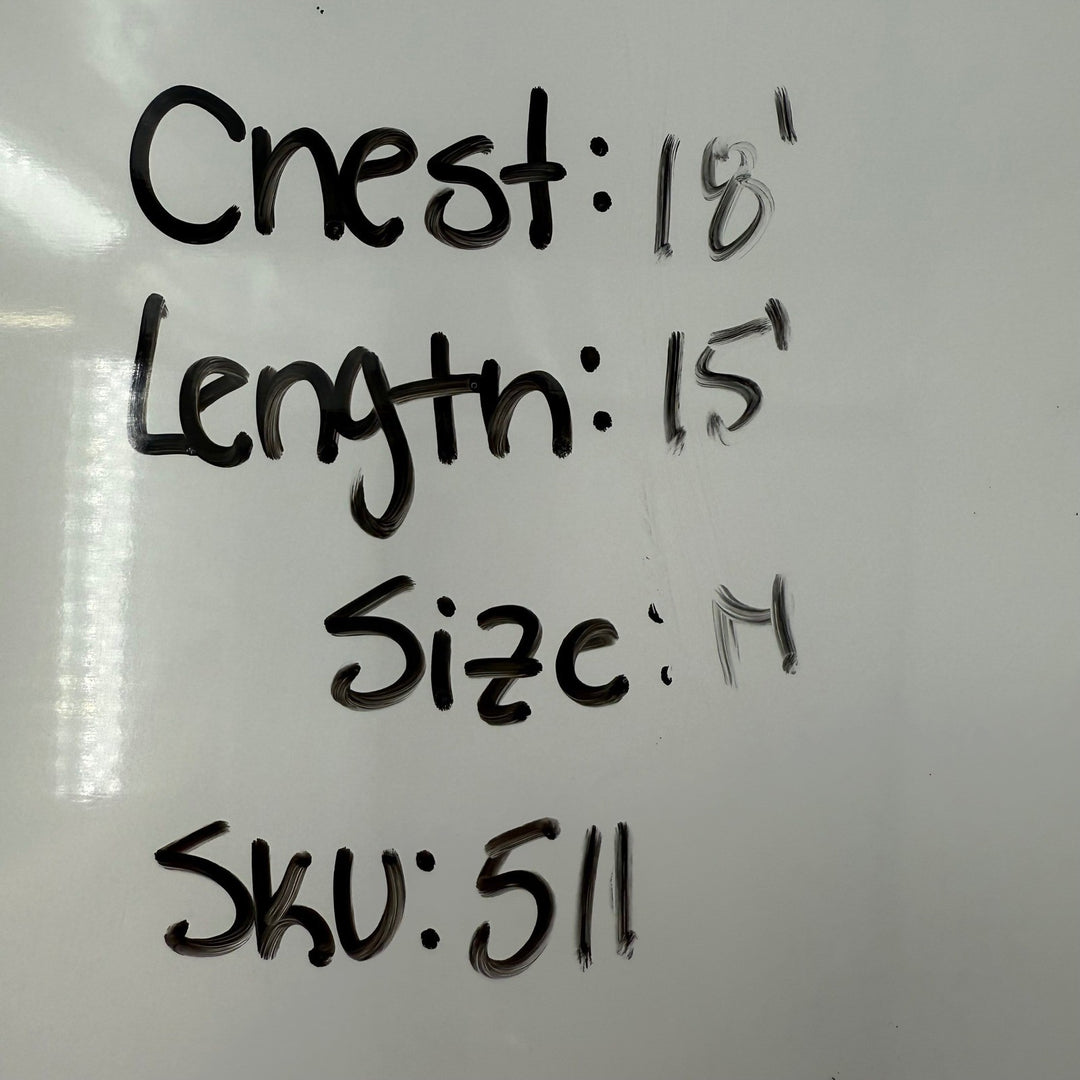 Chest: 18'
Length: 15'
Size: M
SKU: 511